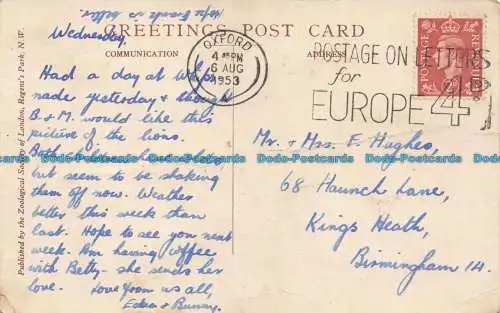 GREETINGS POST CARD
COMMUNICATION
ADDRESS
Hope Granda is better.
Wednesday.
Had a day at Whips
nade yesterday & thought
B & M. would like this
picture of the lions.
Both children have
but seem to be shaking
them off now. Weather
better this week than
last. Hope to see you next
week. Am having coffee
with Betty - she sends her
love. Love from us all,
Edna & Bunny.
Published by the Zoological Society of London, Regent's Park, N.W.
OXFORD
4 PM
6 AUG
1953
POSTAGE ON LETTERS
for
EUROPE 4D
POSTAGE
REVENUE
Mr. & Mrs. E. Hughes,
68 Haunch Lane,
Kings Heath,
Birmingham 14.
Dodo-Postcards.com